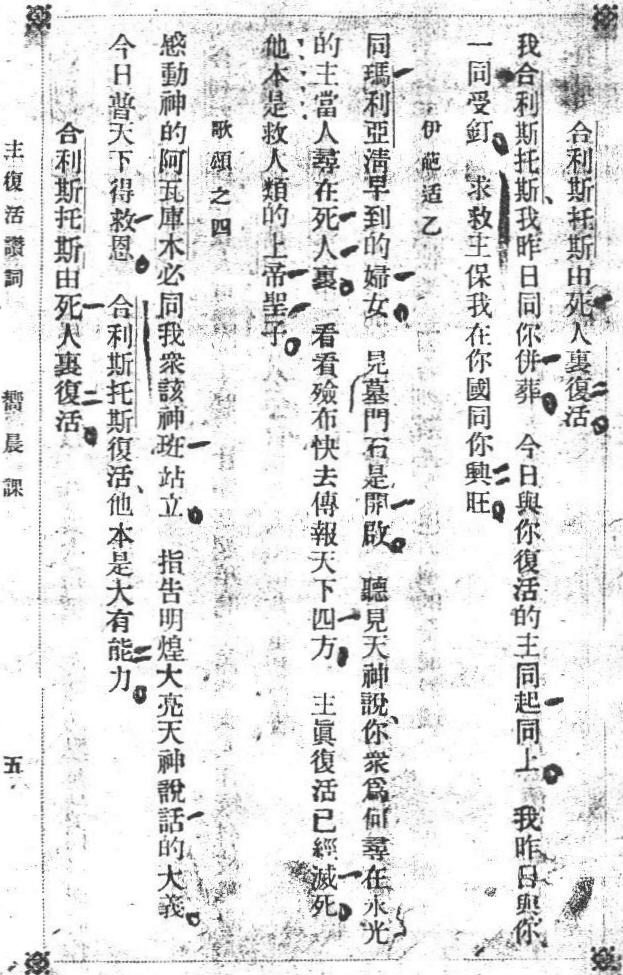 合利斯托斯由死人裏復活
我合利斯托斯、我昨日同你併葬 今日與你復活的主同起同上 我昨日與你
一同受釘 求救主保我在你國同你興旺
伊葩适乙
同瑪利亞清早到的婦女 見墓門石是開啟 聽見天神說、你衆爲何尋在永光
的主當人尋在死人裏 看看殮布快去傳報天下四方 主眞復活已經滅死
他本是救人類的上帝聖子
歌頌之四
感動神的阿瓦庫木必同我衆該神班站立 指告明煌大亮天神說話的大義
今日普天下得救恩 合利斯托斯復活、他本是大有能力
合利斯托斯由死人裏復活
主復活讚詞 嚮晨課 五